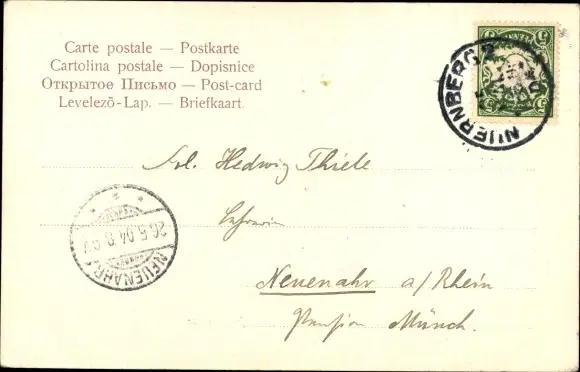 Carte postale — Postkarte
Cartolina postale — Dopisnice
Открытое Письмо — Post-card
Levelezö-Lap. — Briefkaart.
NUERNBERG 2
5 5
Frl. Hedwig Thiele
Neuenahr a/Rhein
Pension Münch.
26.5.04
NEUENAHR